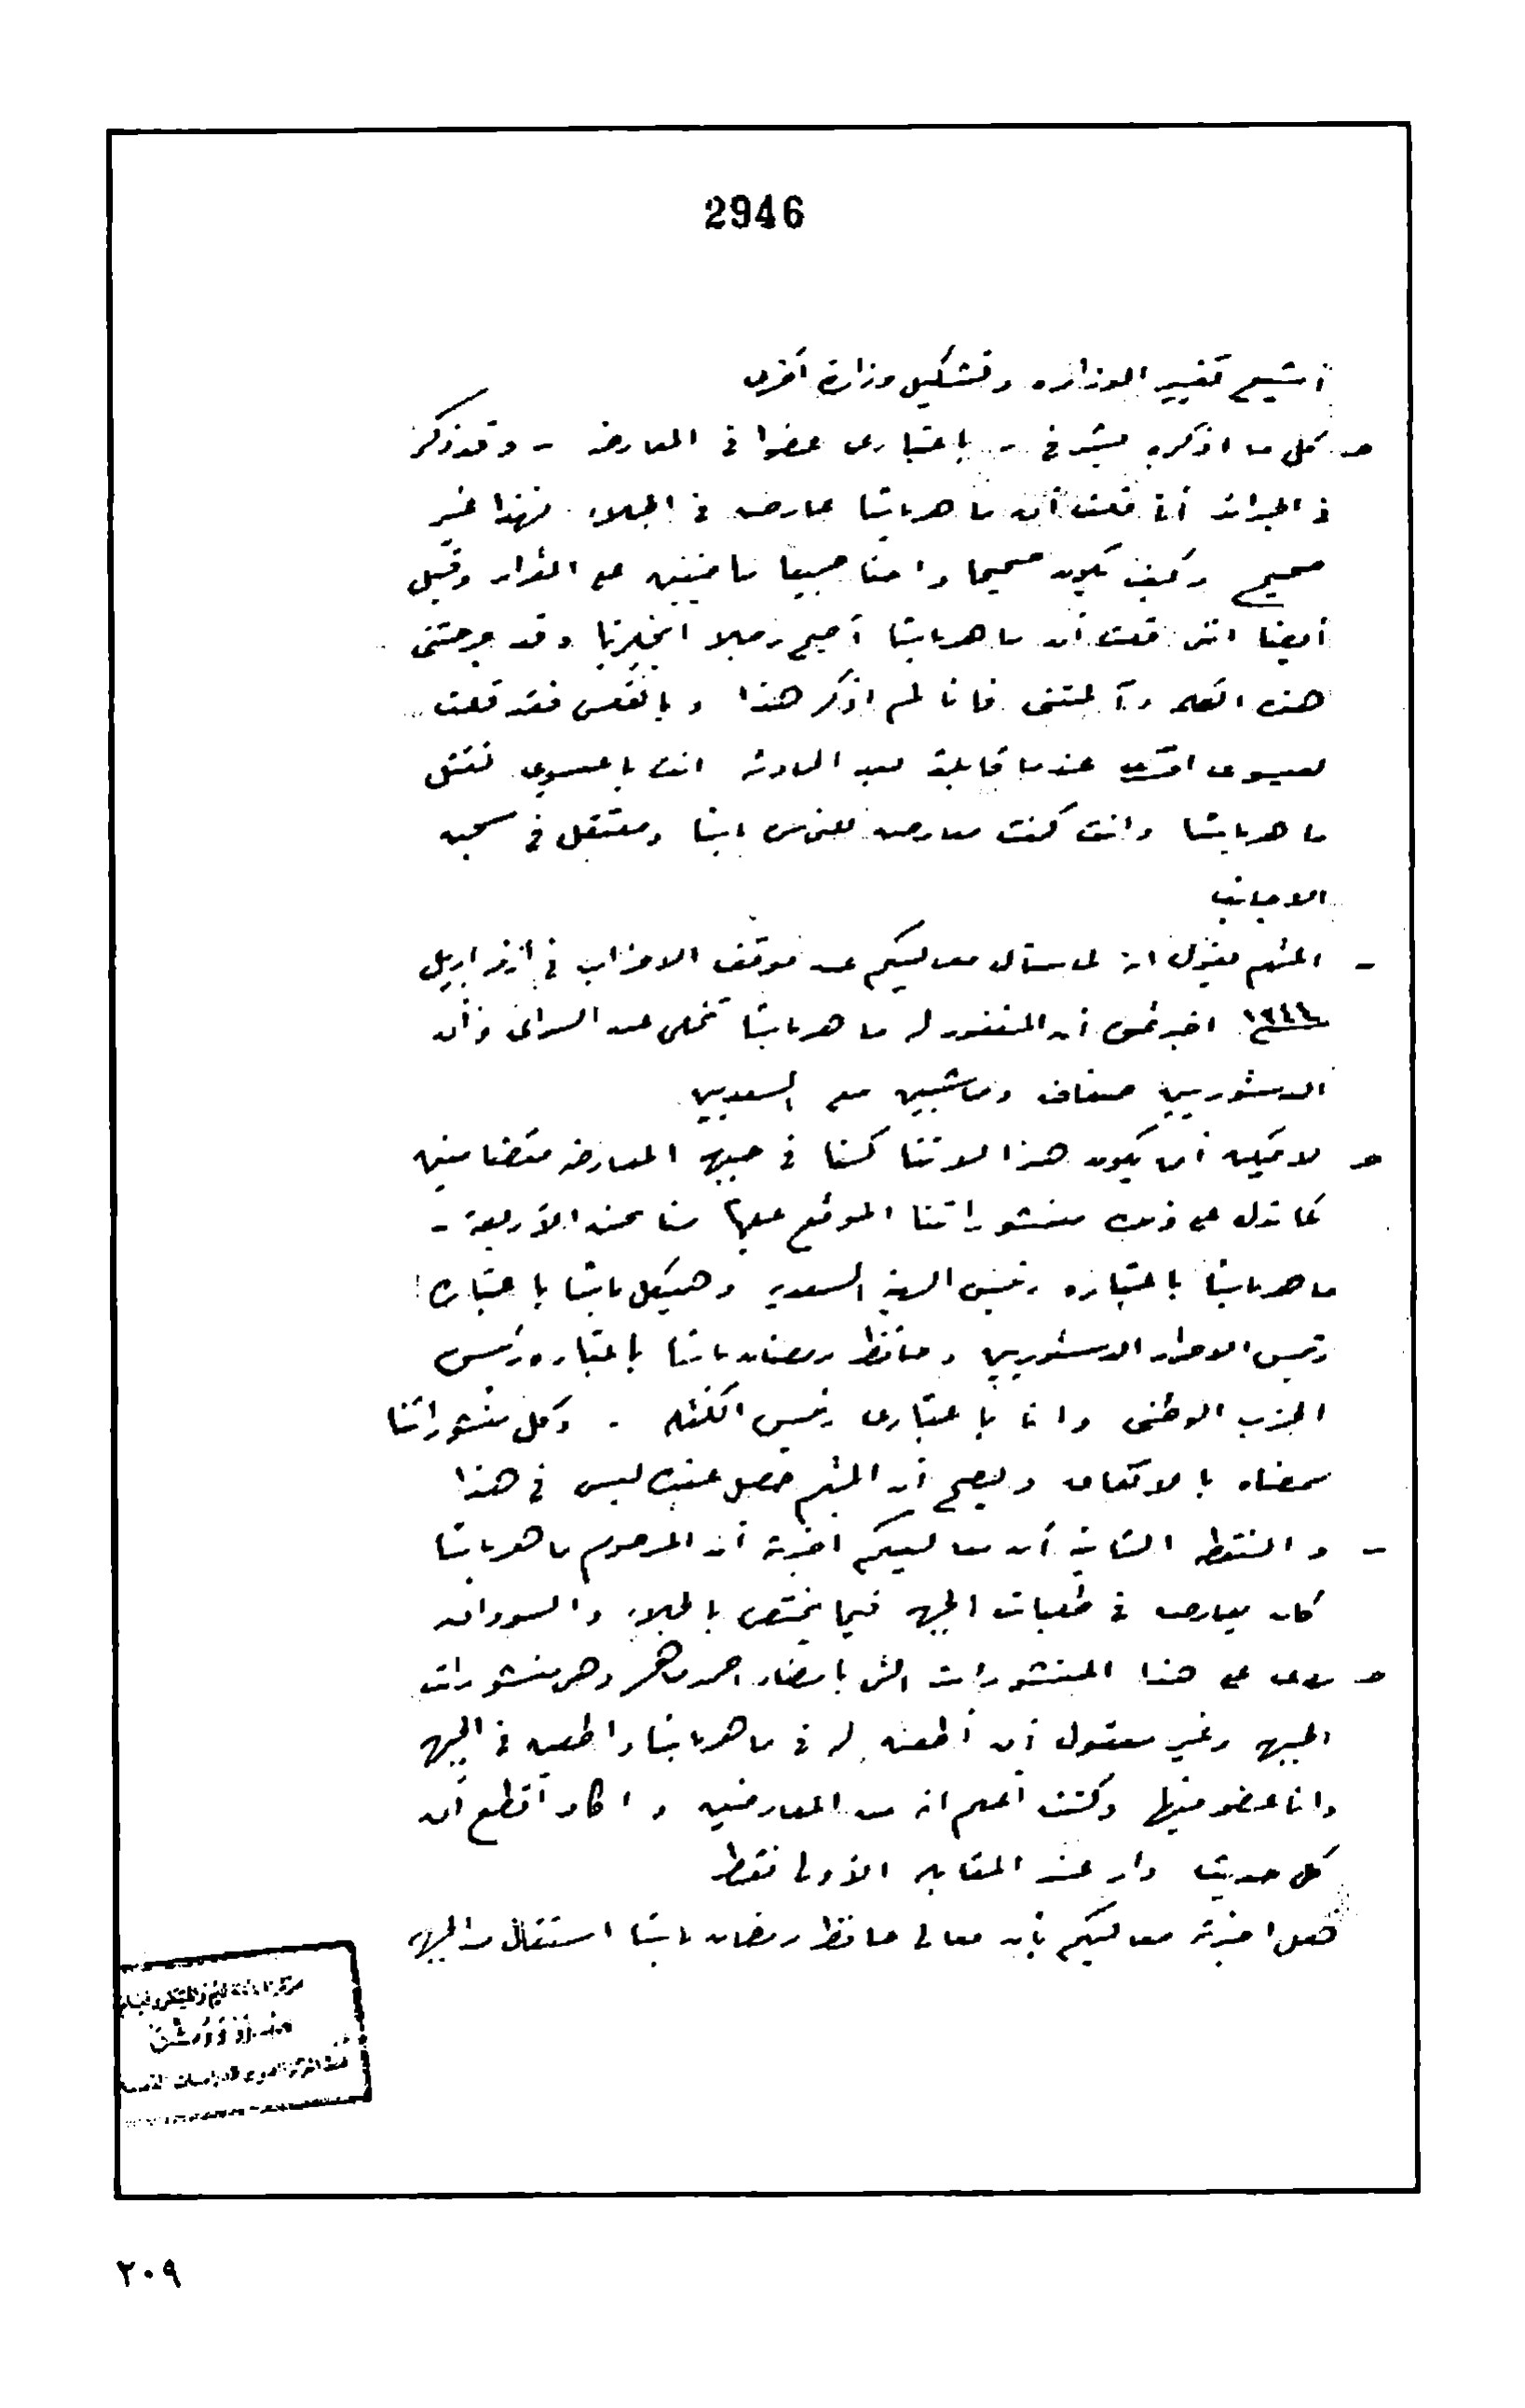 2946
أشيع تغيير الوزاره وتشكيل وزارة أخرى
حـ كل ما اذكره يشرفى - باعتبارى عضوا فى المعارضه - وقد ذكر
فى الجرائد أنى قلت أن ماهر باشا عارض فى الجلاء فهذا غير
صحيح وكيف يكون صحيحا واحنا جميعا ماضيين على القرار وقيل
أيضا اننى قلت أن ماهر باشا أصبح رجلا انجليزيا وقد جرحتنى
هذه الكلمه وآلمتنى فانا لم اذكر هذا وبالعكس فقد قلت
للعيسوى عندما قابلته بعد الحادثه انت يا عيسوى تقتل
ماهر باشا وانت كنت معارض للنحاس باشا ومعتقل فى سجن
الاجانب
- المتهم يقول انه لما سأل معاليكم عن موقف الاحزاب فى أزمة ابريل
١٩٤٤ اخبرتمونى أن المغفور له ماهر باشا تخلى عن السودان وأن
الدستوريين ضعاف وماشيين مع السعديين
حـ لا يمكن أن يكون هذا لاننا كنا فى جبهة المعارضه متضامنين
كما تدل على ذلك منشوراتنا الموقع عليها منا نحن الأربعة -
ماهر باشا باعتباره رئيس الهيئه السعديه وهيكل باشا باعتباره
رئيس الاحرار الدستوريين وحافظ رمضان باشا باعتباره رئيس
الحزب الوطنى وانا باعتبارى رئيس الكتله - وكل منشوراتنا
ممضاه بالاتفاق وليصح أن المتهم حصل عنده لبس فى هذا
- والنقطه الثانيه أن معاليكم اخبرته أن المرحوم ماهر باشا
كان يعارض فى طلبات الجبهه فيما يختص بالجلاء والسودان
حـ يرد على هذا المنشورات التى بامضاء احمد ماهر وهى منشورات
الجبهه وغير معقول أن أطعن له فى ماهر باشا واطعن فى الجبهه
وانا عضو فيها وكنت أعلم انه من المعارضين واكاد أقطع أن
كل حديث دار عند المقابله الأولى فقط
هل اخبرته معاليكم بأن معالى حافظ رمضان باشا استقال من الجبهه
٢٠٩